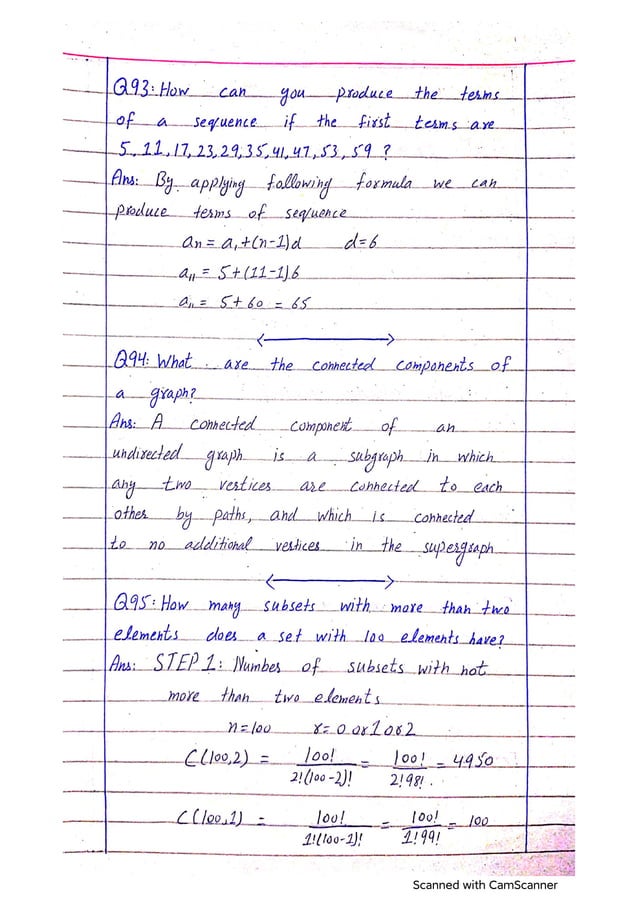 Q93: How can you produce the terms
of a sequence if the first terms are
5, 11, 17, 23, 29, 35, 41, 47, 53, 59 ?
Ans: By applying following formula we can
produce terms of sequence
an = a1+(n-1)d d=6
a11 = 5+(11-1)6
a11 = 5+60 = 65
Q94: What are the connected components of
a graph?
Ans: A connected component of an
undirected graph is a subgraph in which
any two vertices are connected to each
other by paths, and which is connected
to no additional vertices in the supergraph
Q95: How many subsets with more than two
elements does a set with 100 elements have?
Ans: STEP 1: Number of subsets with not
more than two elements
n=100 r= 0 or 1 or 2
C(100,2) = 100!/2!(100-2)! = 100!/2!98! = 4950
C(100,1) = 100!/1!(100-1)! = 100!/1!99! = 100
Scanned with CamScanner